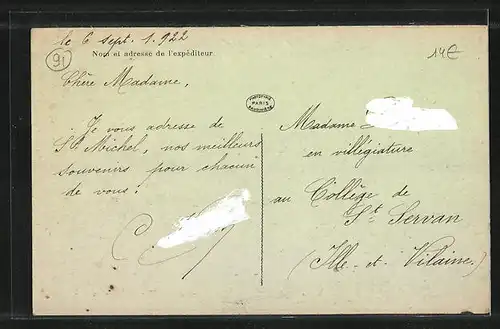 le 6 sept. 1.922
91
14€
Nom et adresse de l'expéditeur
Chère Madame,
PARIS
Je vous adresse de
St Michel, nos meilleurs
souvenirs pour chacun
de vous!
Madame
en villégiature
au Collège de
St Servan
(Ille-et-Vilaine.)